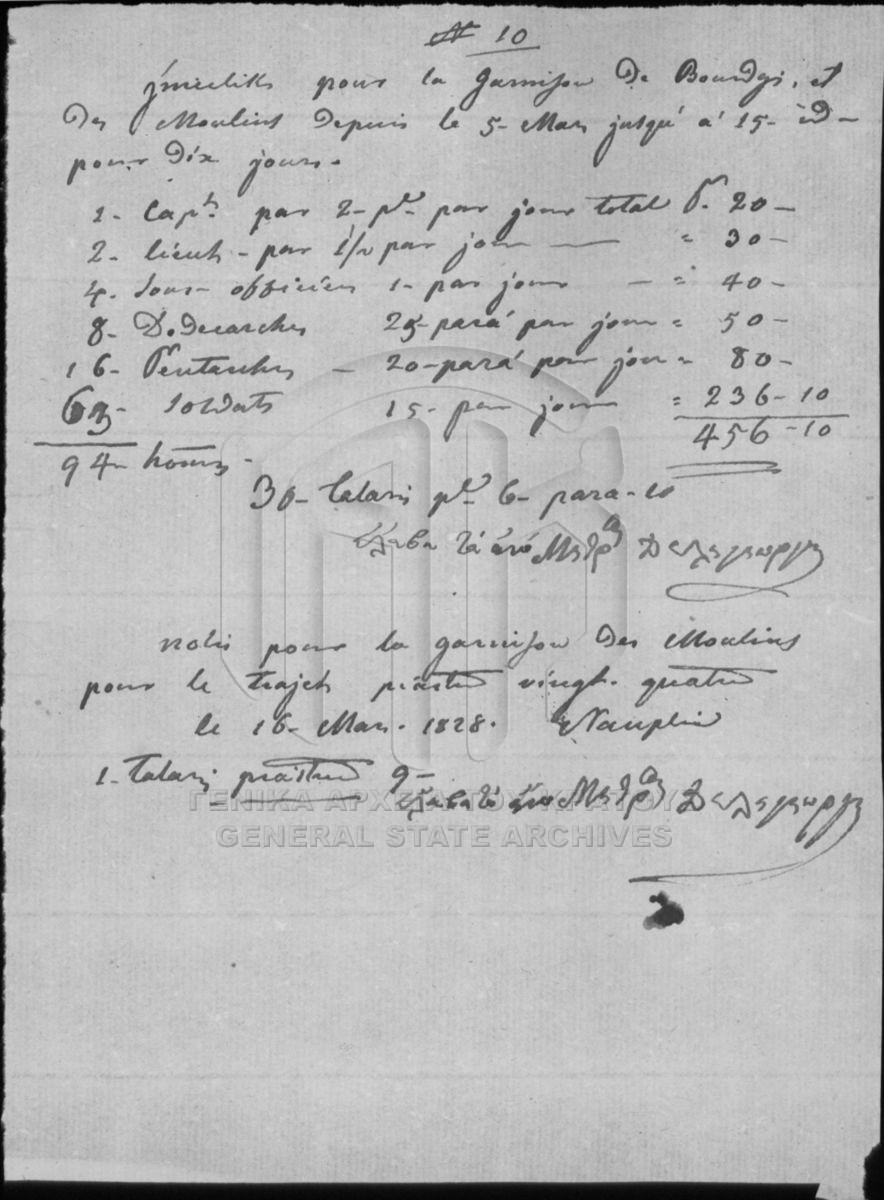 N 10
jmieliks pour la garnison de Bourdgi, et
des Moulins depuis le 5- Mars jusqu'à 15- id-
pour dix jours.
1- Capt: par 2- pr par jour total P. 20-
2. lieut- par 1½ par jour — " 30-
4. Sous- officiers 1- par jour — " 40-
8- Dodecarches 25- pará par jour " 50-
16- Pentarches - 20- pará par jour " 80-
63- Soldats 15- par jour " 236-10
456-10
94- homs-
30- talaris 6- para-10
ἔλαβα τὰ ἄνο Μητρο Δεληγεωργη
nolis pour la garnison des Moulins
pour le trajet piastres vingt- quatre
le 16- Mars. 1828. Nauplie
1- talari piastres 9-
ἔλαβα τὰ ἄνο Μητρο Δεληγεωργη
ΓΕΝΙΚΑ ΑΡΧΕΙΑ ΤΟΥ ΚΡΑΤΟΥΣ
GENERAL STATE ARCHIVES